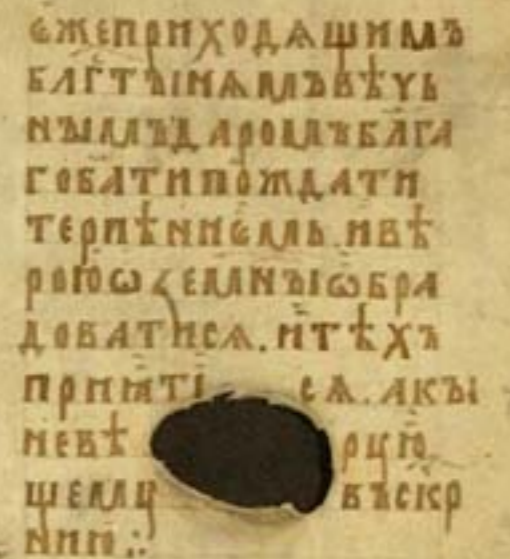 ѥжеприходѧщимъ
блг҃тъінѧмъвѣчь
нъімъдаромъблага
гобатипождати
терпѣниѥмь.ивѣ
роюѿземлнъіѡбра
доватисѧ.итѣхъ
приꙗті сѧ.акъі
невѣ рцю
щему въскр
нию